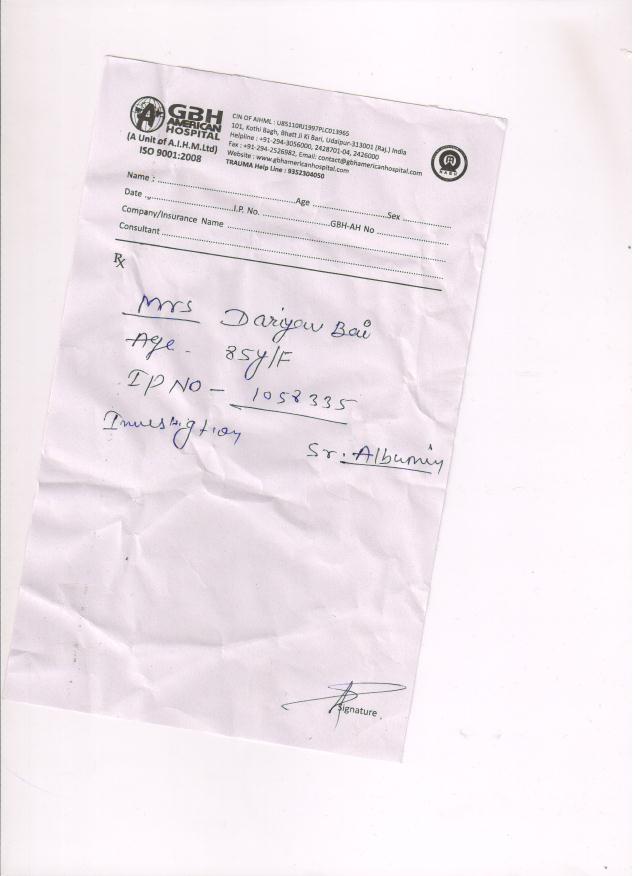 GBH
AMERICAN
HOSPITAL
(A Unit of A.I.H.M.Ltd)
ISO 9001:2008
CIN OF AIHML : U85110RJ1997PLC013965
101, Kothi Bagh, Bhatt Ji Ki Bari, Udaipur-313001 (Raj.) India
Helpline : +91-294-3056000, 2428701-04, 2426000
Fax : +91-294-2526982, Email: contact@gbhamericanhospital.com
Website : www.gbhamericanhospital.com
TRAUMA Help Line : 9352304050
Name : Age Sex
Date I.P. No. GBH-AH No
Company/Insurance Name
Consultant
Rx
Mrs Dariyav Bai
Age - 85y/F
IP NO - 1058335
Investigtion
Sr. Albumin
Signature